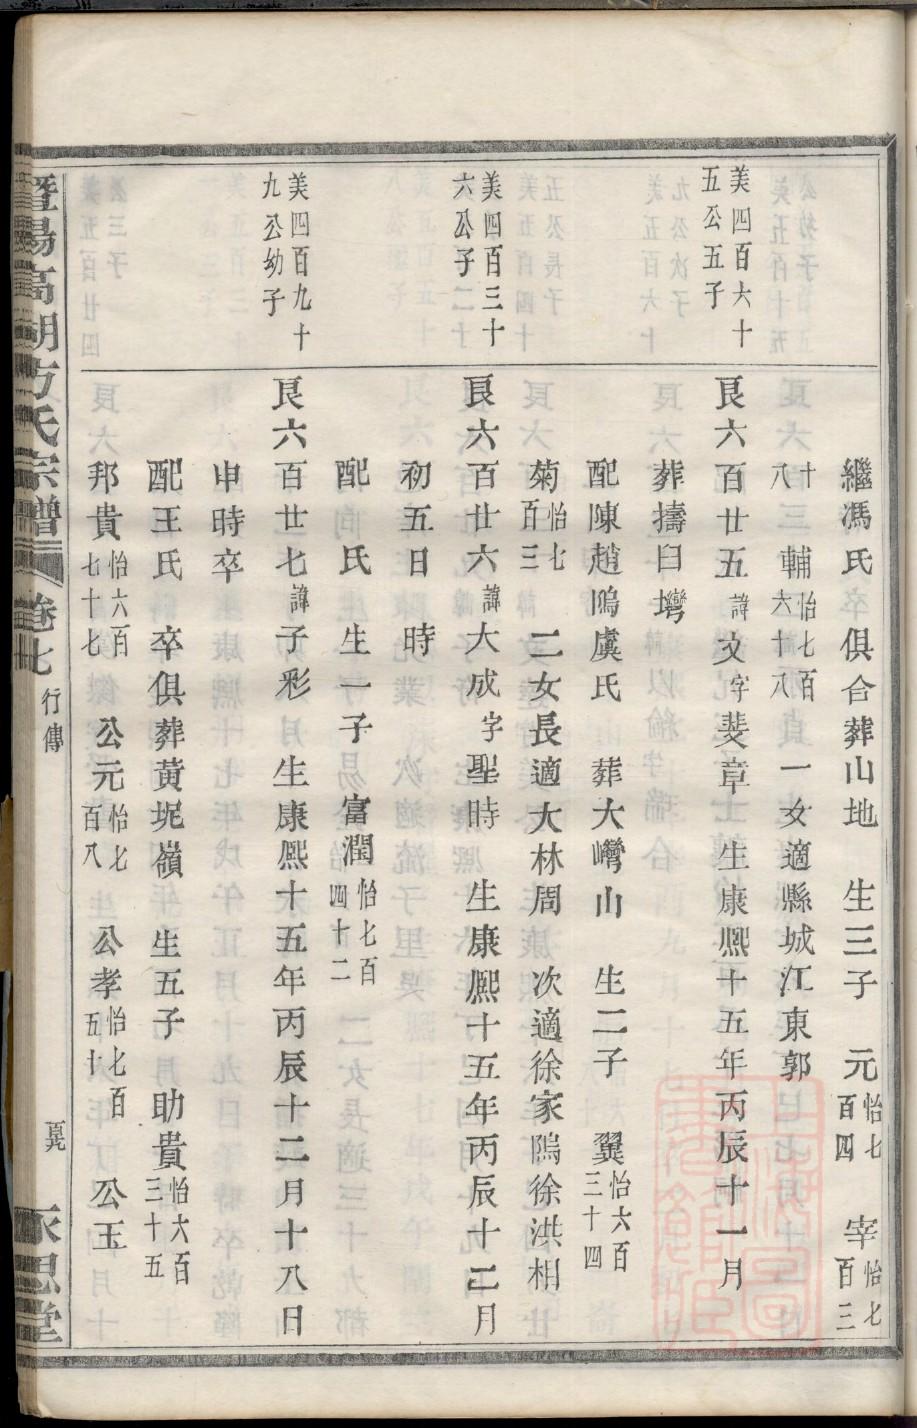 繼馮氏 俱合葬山地 生三子 元怡七百四 宰怡七百三
十八 輔怡七百六十八 一女適縣城江東郭
美四百六十五公五子
艮六百廿五諱文字斐章生康熙十五年丙辰十一月
葬擣臼塆
配陳趙隖虞氏 葬大灣山 生二子 翼怡六百三十四
菊怡七百三 二女長適大林周 次適徐家隖徐洪相
美四百三十六公子
艮六百廿六諱大成字聖時 生康熙十五年丙辰十二月
初五日 時
配 氏 生一子 富潤怡七百四十二
美四百九十九公幼子
艮六百廿七諱子彩 生康熙十五年丙辰十二月十八日
申時卒
配王氏 卒俱葬黃坭嶺 生五子 助貴怡六百三十五
邦貴怡六百七十七 公元怡七百八 公孝怡七百五十 公玉
暨陽高湖方氏宗譜 卷七 行傳 永思堂